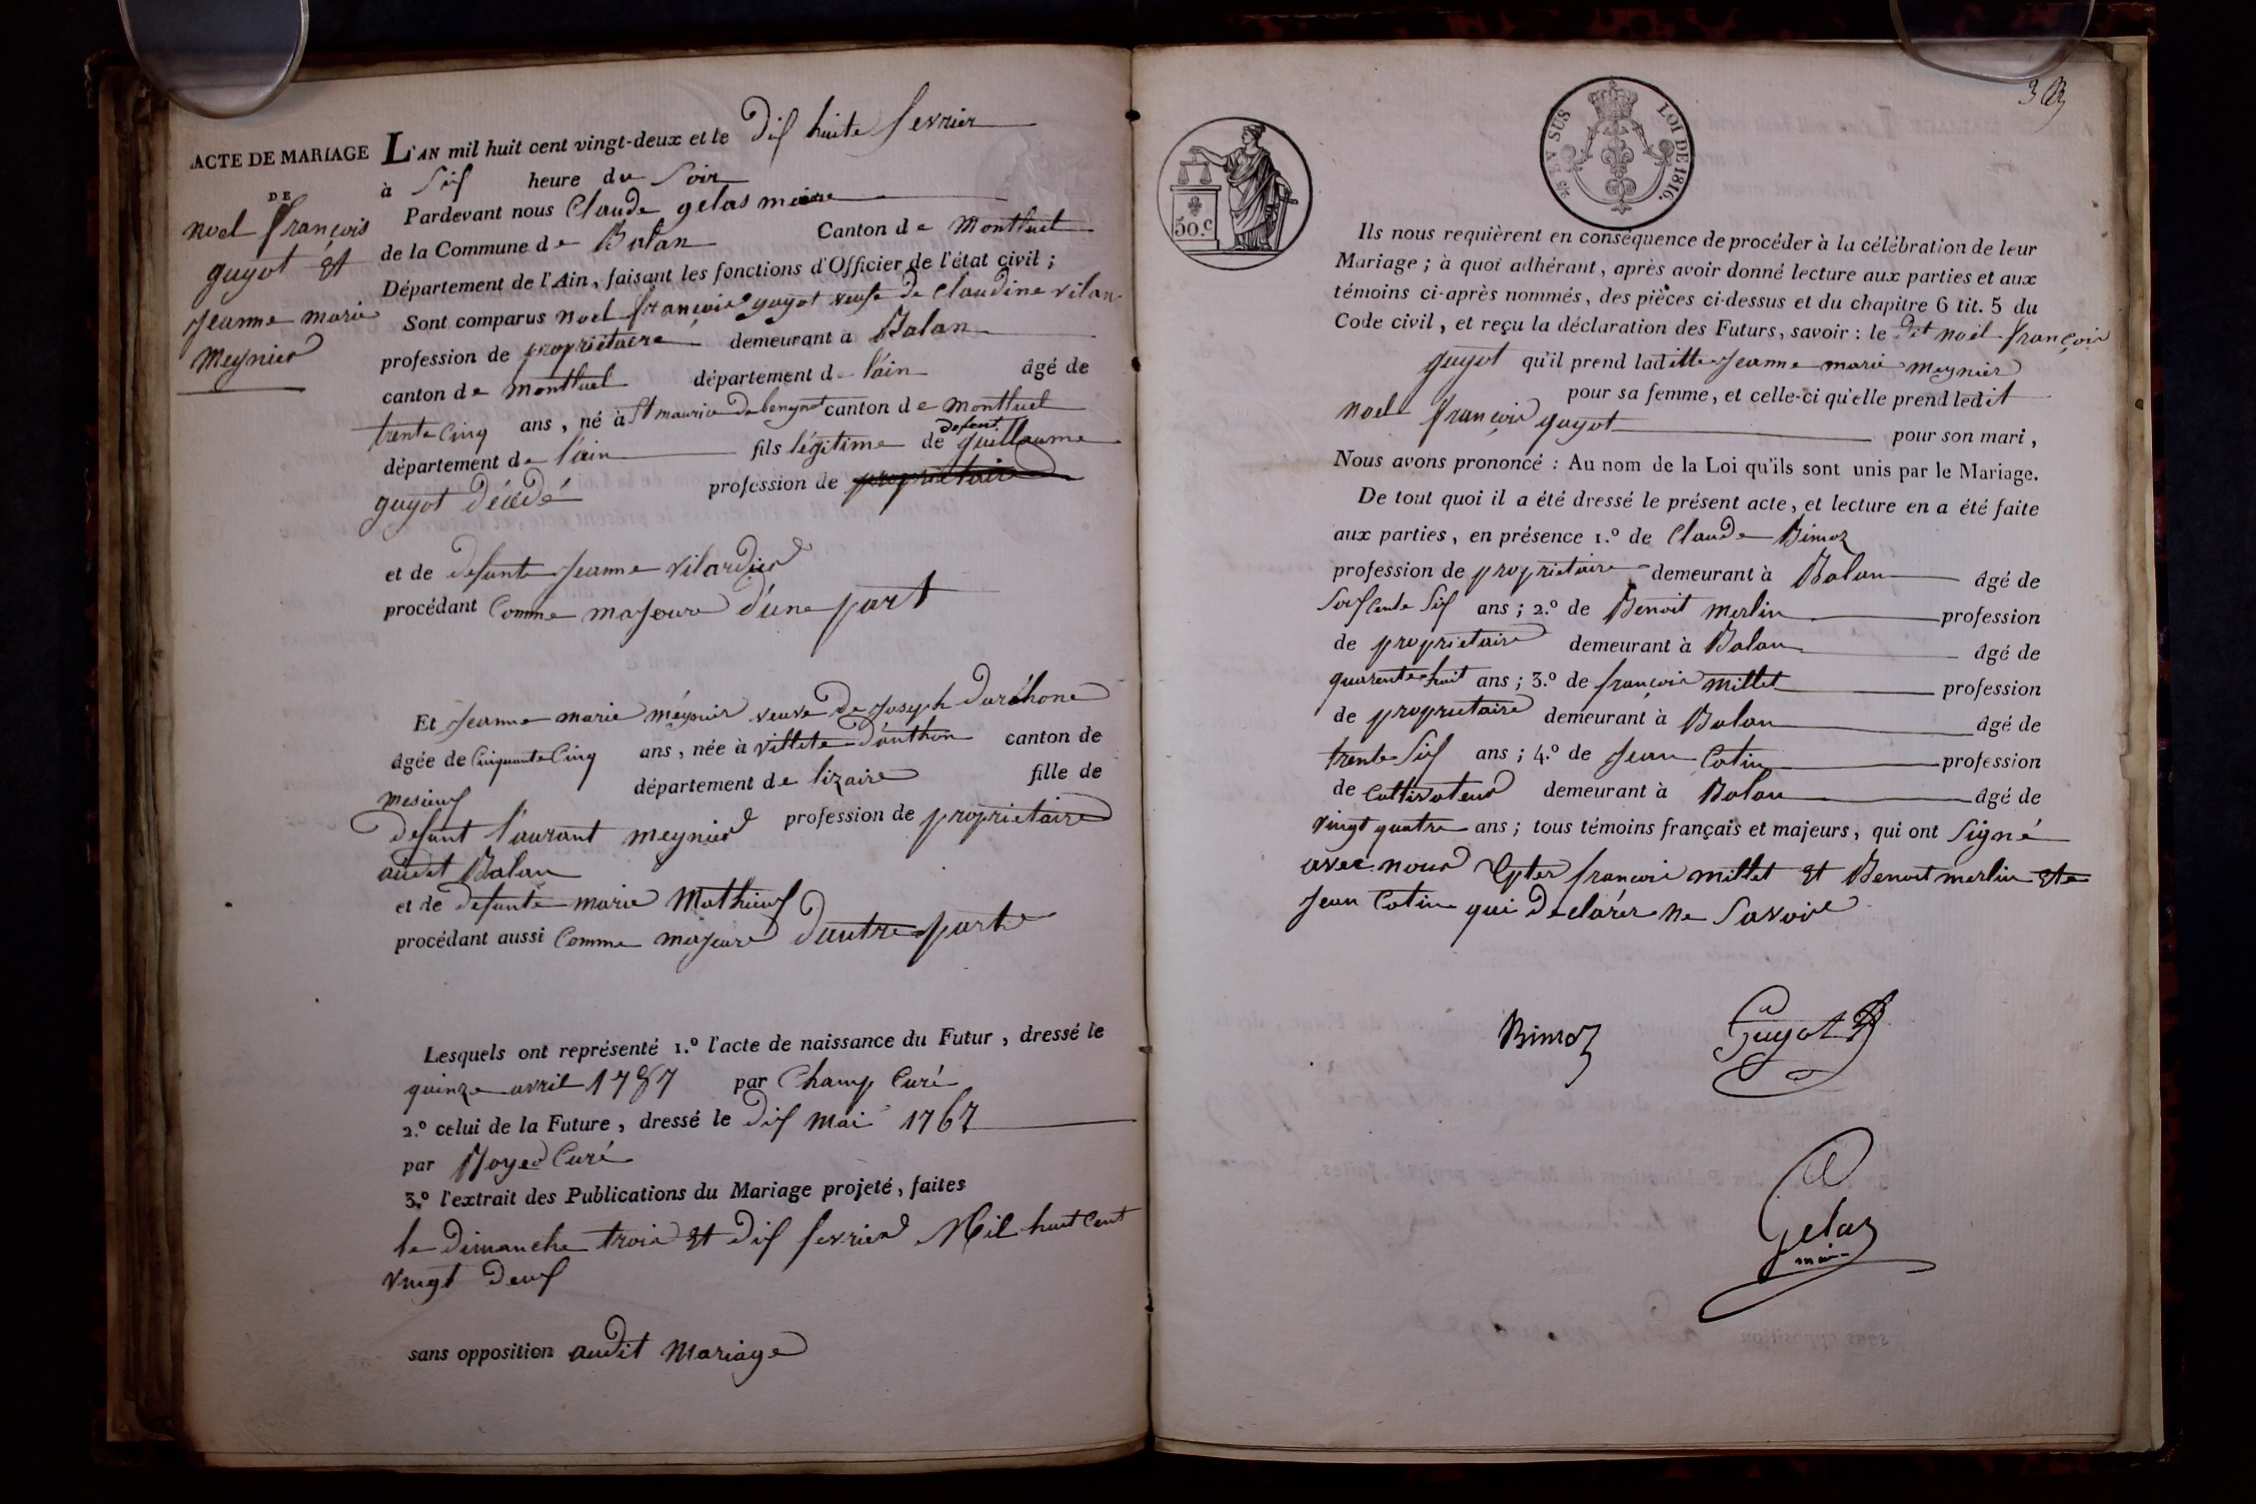 ACTE DE MARIAGE
DE
noel françois
guyot et
jeanne marie
meynier
L'AN mil huit cent vingt-deux et le dix huite fevrier
à Six heure du Soir
Pardevant nous Claude gelas maire
de la Commune de Balan Canton de Montluel
Département de l'Ain, faisant les fonctions d'Officier de l'état civil ;
Sont comparus noel françois guyot veuf de Claudine vilan
profession de propriétaire demeurant à Balan
canton de montluel département de l'ain âgé de
trente Cinq ans, né à St maurice de benynot canton de montluel
defunt
département de l'ain fils légitime de guillaume
guyot Décédé profession de propriétaire
et de defunte jeanne vilardier
procédant Comme majeure d'une part
Et jeanne marie méynier veuve de joseph Duréhone
âgée de Cinquante Cinq ans, née à villete d'anthon canton de
mesieux département de lizaire fille de
defunt l'aurant meynier profession de proprietaire
audit Balan
et de defunte marie Mathieux
procédant aussi Comme majeure D'autre part
Lesquels ont représenté 1.º l'acte de naissance du Futur, dressé le
quinze avril 1787 par Champ Curé
2.º celui de la Future, dressé le dix mai 1767
par Royer Curé
3.º l'extrait des Publications du Mariage projeté, faites
le dimanche trois et dix fevrier Mil huit Cent
vingt deux
sans opposition audit mariage
50.C
EN SUS
LOI DE 1816.
Ils nous requièrent en conséquence de procéder à la célébration de leur
Mariage ; à quoi adhérant, après avoir donné lecture aux parties et aux
témoins ci-après nommés, des pièces ci-dessus et du chapitre 6 tit. 5 du
Code civil, et reçu la déclaration des Futurs, savoir : le dit noël françois
guyot qu'il prend laditte jeanne marie meynier
pour sa femme, et celle-ci qu'elle prend ledit
noel françois guyot pour son mari,
Nous avons prononcé : Au nom de la Loi qu'ils sont unis par le Mariage.
De tout quoi il a été dressé le présent acte, et lecture en a été faite
aux parties, en présence 1.º de Claude Bimoz
profession de proprietaire demeurant à Balan âgé de
Soixante Six ans ; 2.º de Benoit merlin profession
de proprietaire demeurant à Balan âgé de
quarente huit ans ; 3.º de françois millet profession
de proprietaire demeurant à Balan âgé de
trente Six ans ; 4.º de Jean Cotin profession
de Cultivateur demeurant à Balan âgé de
vingt quatre ans ; tous témoins français et majeurs, qui ont Signé
avec nous françois millet et Benoit merlin et
Jean Cotin qui declarer ne Savoir
Bimoz
Guyot
Gelas
maire